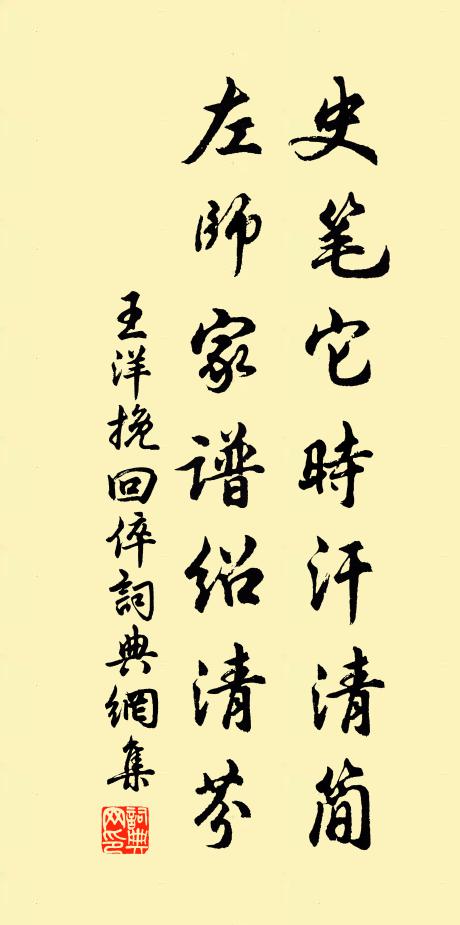 史笔它時汗清简
左師家谱绍清芬
王洋挽回倅詞典網集
詞典网印